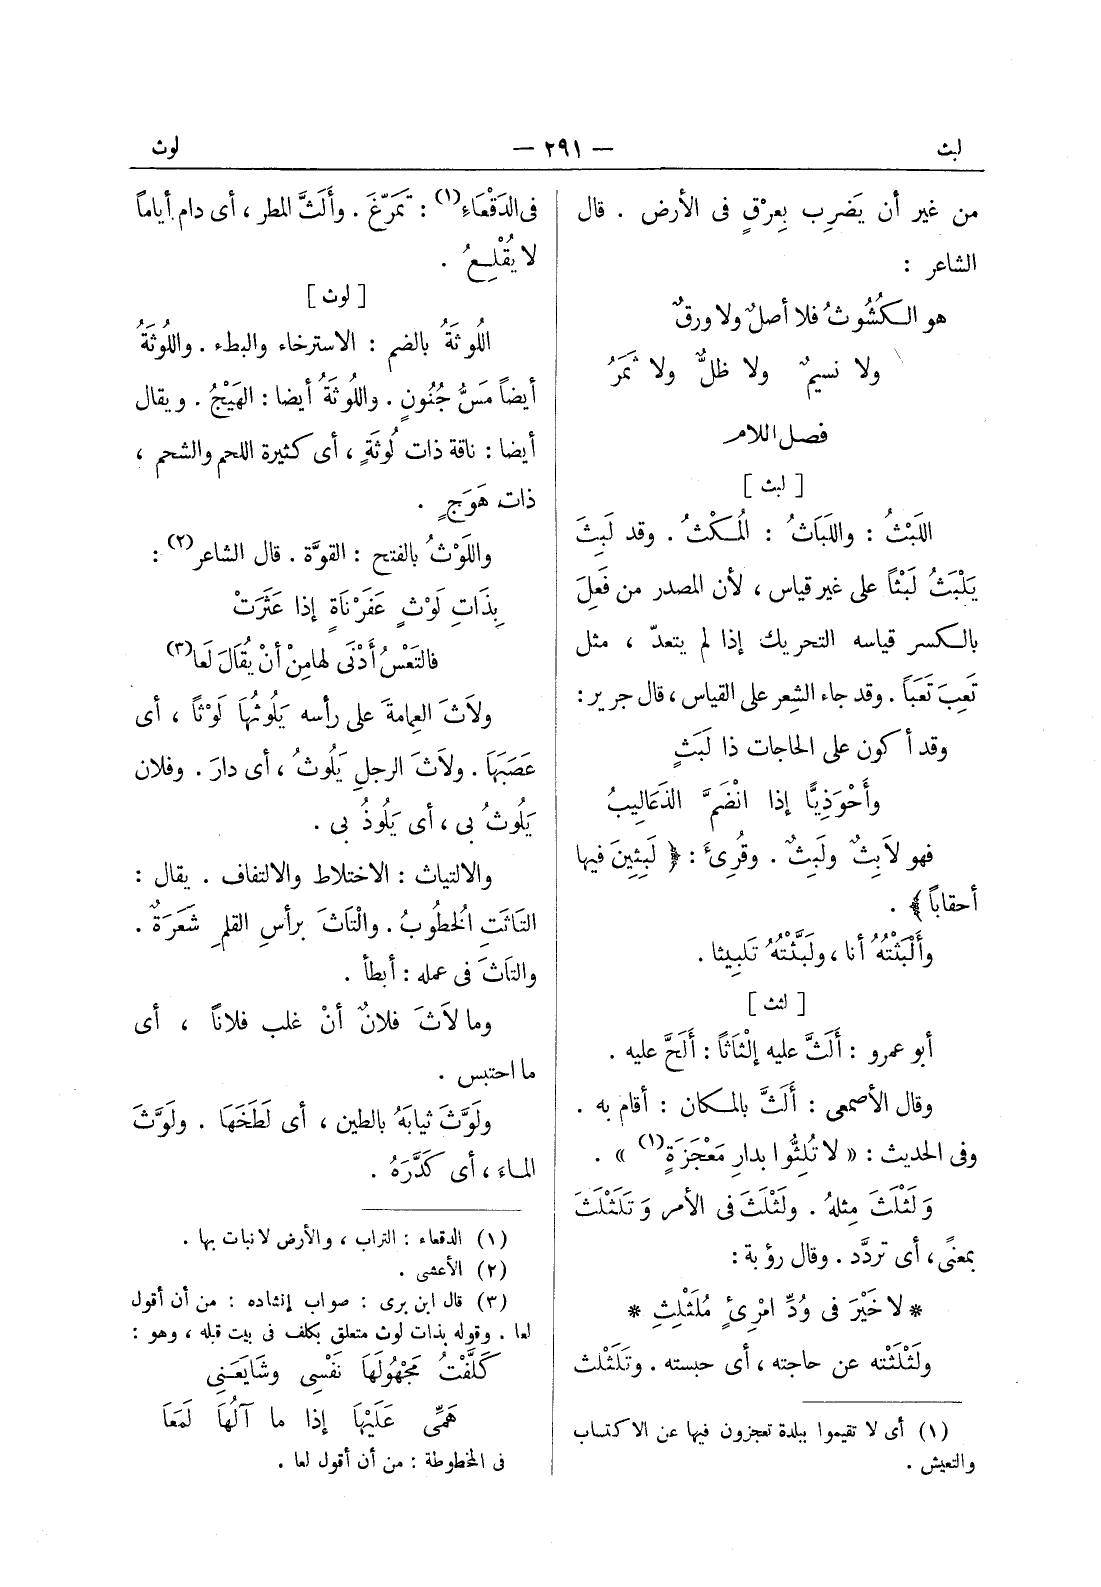 لبث — ٢٩١ — لوث
من غير أن يَضرِب بِعِرْقٍ فى الأرض . قال
الشاعر :
هو الكُشُوثُ فلا أصلٌ ولا ورقٌ
ولا نسيمٌ ولا ظلٌّ ولا ثَمَرُ
فصل اللام
[ لبث ]
اللَبْثُ : واللَبَاثُ : المُكْثُ . وقد لَبِثَ
يَلْبَثُ لَبْثاً على غير قياس ، لأن المصدر من فَعِلَ
بالكسر قياسه التحريك إذا لم يتعدّ ، مثل
تَعِبَ تَعَباً . وقد جاء الشعر على القياس ، قال جرير :
وقد أكون على الحاجات ذا لَبَثٍ
وأَحْوَذِيًّا إذا انْضَمَّ الذَعَالِيبُ
فهو لاَبِثٌ ولَبِثٌ . وقُرِئَ : ﴿ لَبِثِينَ فيها
أحقاباً ﴾ .
وأَلْبَثْتُهُ أنا ، ولَبَّثْتُهُ تَلبِيثا .
[ لثث ]
أبو عمرو : أَلَثَّ عليه إلْثَاثاً : أَلَحَّ عليه .
وقال الأصمعى : أَلَثَّ بالمكان : أقام به .
وفى الحديث : « لا تُلِثُّوا بدارِ مَعْجَزَةٍ(١) » .
وَلَثْلَثَ مثلهُ . ولَثْلَثَ فى الأمر وَتَلَثْلَثَ
بمعنًى ، أى تردَّد . وقال رؤبة :
* لا خَيْرَ فى وُدِّ امْرِئٍ مُلَثْلِثِ *
ولَثْلَثْته عن حاجته ، أى حبسته . وتَلَثْلث
(١) أى لا تقيموا ببلدة تعجزون فيها عن الاكتساب
والتعيش .
فى الدَقْعَاءِ(١) : تَمَرّغَ . وأَلَثَّ المطر ، أى دام أياماً
لا يُقْلِعُ .
[ لوث ]
اللُوثَةُ بالضم : الاسترخاء والبطء . واللُوثَةُ
أيضاً مَسُّ جُنُونٍ . واللُوثَةُ أيضا : الهَيْجُ . ويقال
أيضا : ناقة ذات لُوثَةٍ ، أى كثيرة اللحم والشحم ،
ذات هَوَجٍ .
واللَوْثُ بالفتح : القوَّة . قال الشاعر(٢) :
بِذَاتِ لَوْثٍ عَفَرْنَاةٍ إذا عَثَرَتْ
فالتَعْسُ أَدْنَى لها مِنْ أنْ يُقَالَ لَعا(٣)
ولاَثَ العمامةَ على رأسه يَلُوثُهَا لَوْثاً ، أى
عَصَبَهَا . ولاَثَ الرجل يَلُوثُ ، أى دارَ . وفلان
يَلُوثُ بى ، أى يَلُوذُ بى .
والالتياث : الاختلاط والالتفاف . يقال :
التَاثَتِ الخُطُوبُ . والْتَاثَ برأسِ القلمِ شَعَرَةٌ .
والتَاثَ فى عمله : أبطأ .
وما لاَثَ فلانٌ أنْ غلب فلاناً ، أى
ما احتبس .
ولَوَّثَ ثيابَهُ بالطين ، أى لَطَخَهَا . ولَوَّثَ
الماءَ ، أى كَدَّرَهُ .
(١) الدقعاء : التراب ، والأرض لا نبات بها .
(٢) الأعشى .
(٣) قال ابن برى : صواب إنشاده : من أن أقول
لعا . وقوله بذات لوث متعلق بكلف فى بيت قبله ، وهو :
كَلَّفْتُ مَجْهُولَهَا نَفْسِى وشَايَعَنِى
هَمِّى عَلَيْهَا إذا ما آلُهَا لَمَعَا
فى المخطوطة : من أن أقول لعا .